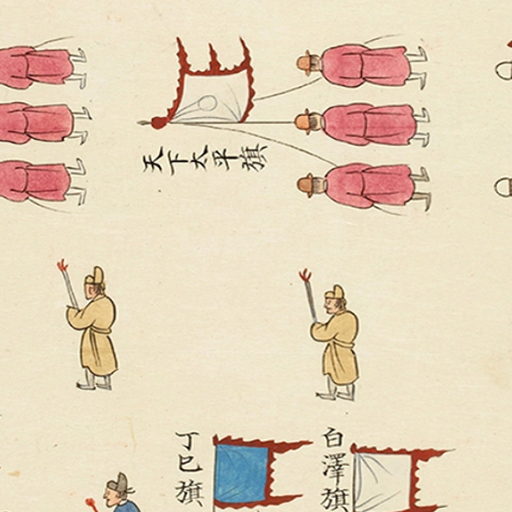 天下太平旗
白澤旗
丁巳旗